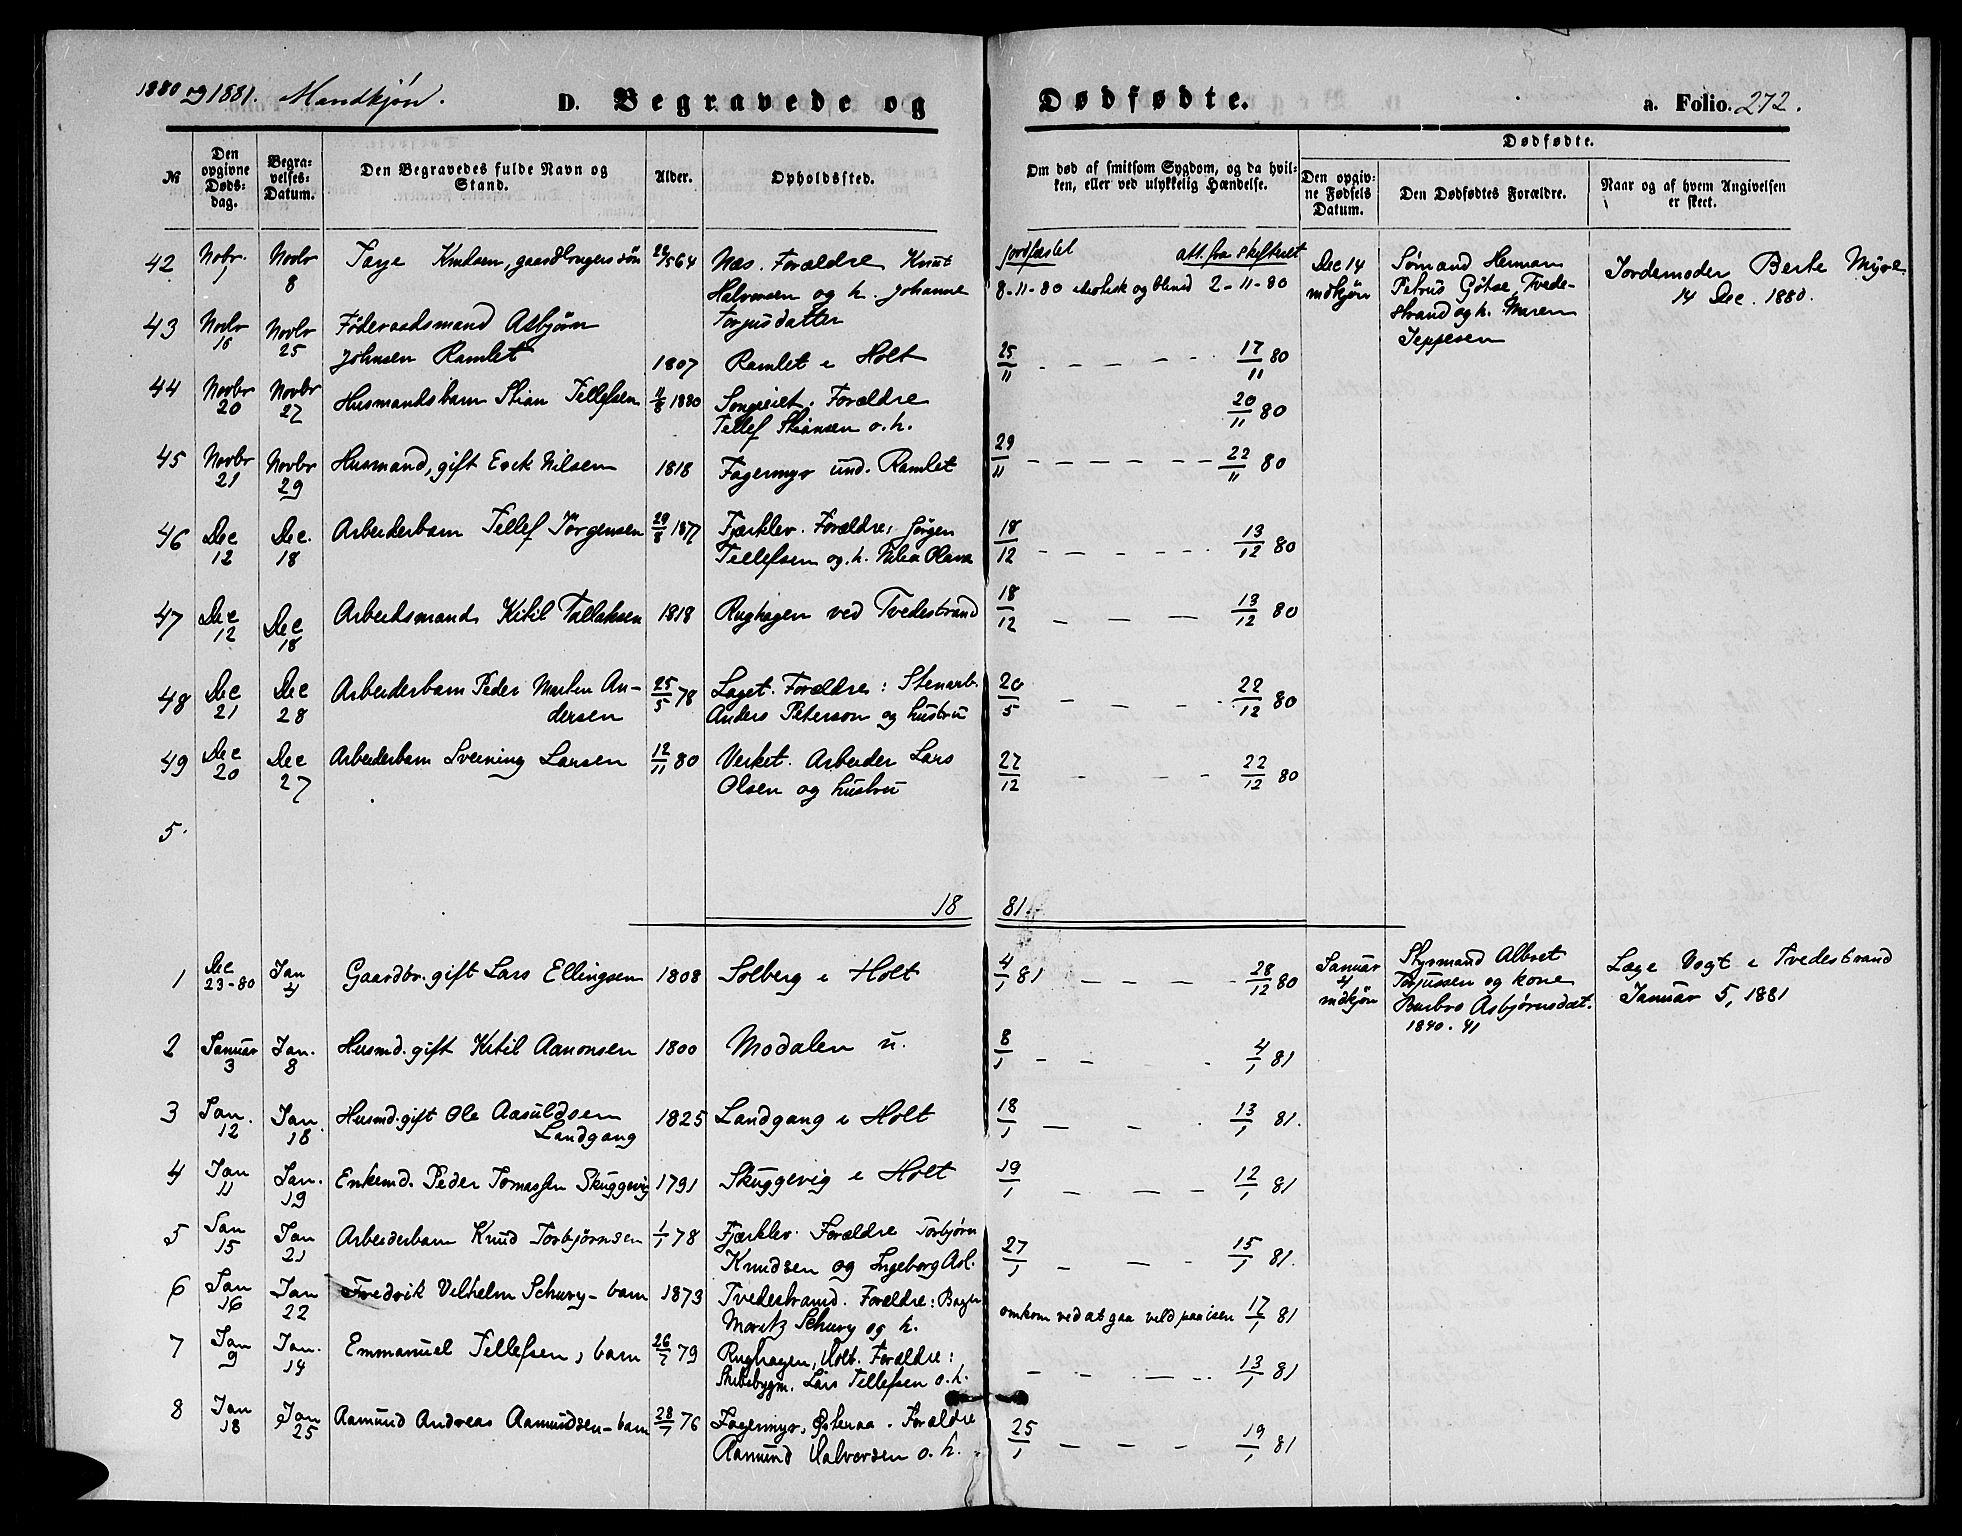 1880 og 1881. Mandkjøn. D. Begravede og Dødfødte. a. Folio. 272.
No
Den opgivne Døds-dag.
Begra-velses-Datum.
Den Begravedes fulde Navn og Stand.
Alder.
Opholdssted.
Om død af smitsom Sygdom, og da hvil-ken, eller ved ulykkelig Hændelse.
Dødfødte.
Den opgiv-ne Fødsels Datum.
Den Dødfødtes Forældre.
Naar og af hvem Angivelsen er skeet.
jordfæstet att. fra skifteret
42 Nobr. 1 Novbr 8 Tarje Knudsen, gaardbrugers søn 64 Næs. Forældre Knut
Halvorsen og h. Johanne
Torjusdatter
8-11-80 og blind 2-11-80
Dec 14 mdkjøn
Sømand Herman
Petrus Götse, Tvede-
strand og h. Maren
Jeppesen
Jordemoder Berte Myre
14 Dec. 1880.
43 Novbr 16 Novbr 25 Føderaadsmand Asbjørn
Johnsen Ramlet 1807 Ramlet i Holt 25/11 - - - 17/11 80
44 Novbr 20 Novbr 27 Husmandsbarn Stian Tellefsen 11/8 1880 Songeeilet. Forældre
Tellef Stiansen o. h. 20/11 80
45 Novbr 21 Novbr 29 Husmand, gift Erik Nilsen 1818 Fagermyr und. Ramlet 29/11 - - - - - 22/11 80
46 Dec 12 Dec. 18 Arbeiderbarn Tellef Jörgensen 29/8 1877 Fjærklev. Forældre: Jörgen
Tellefsen og. h. Olava 18/12 - - - - - 13/12 80
47 Dec 12 Dec 18 Arbeidsmand Kitil Tallaksen 1818 Rughagen ved Tvedestrand 18/12 - - - 13/12 80
48 Dec 21 Dec 28 Arbeiderbarn Peder Marten An-
dersen 25/5 78 Laget. Forældre: Stenarb.
Anders Peterson og hustru 20/5 - - - 22/12 80
49 Dec 20 Dec 27 Arbeiderbarn Sveining Larsen 12/11 80 Verket. Arbeider Lars
Olsen og hustru 27/12 - - - 22/12 80
5.
1881.
1 Dec 23-80 Jan 4 Gaardbr. gift Lars Ellingsen 1808 Solberg i Holt 4/1 81 - - - 28/12 80
Januar 4 mdkjøn
Styrmand Albret
Torjussen og kone
Barbro Asbjørnsdat.
1840. 41
Læge Vogt i Tvedestrand
Januar 5, 1881
2 Januar 3 Jan. 8 Husmd. gift Kitil Aanonsen 1800 Modalen u. 8/1 - - - 4/1 81
3 Jan. 12 Jan. 18 Husmd. gift Ole Aasuldsen
Landgang 1825 Landgang i Holt 18/1 - - . 13/1 81.
4 Jan 11 Jan. 19 Enkemd. Peder Tomassen Skuggevig 1791 Skuggevig i Holt 19/1 - - - 12/1 81
5 Jan 15 Jan 21 Arbeiderbarn Knud Torbjørnsen 1/1 78 Fjærklev. Forældre Torbjørn
Knudsen og Ingeborg Asl. 27/1 - - - 15/1 81.
6 Jan 16 Jan 22 Fredrik Vilhelm Schury - barn 1873 Tvedestrand. Forældre: Bager
Moritz Schury og h. omkom ved at gaa veld paa isen 17/1 81
7 Jan 9 Jan. 14 Emmanuel Tellefsen, barn 26/7 79 Rughagen, Holt. Forældre:
Skibsbygm. Lars Tellefsen o. h. - - - - 13/1 81
8 Jan 18 Jan 25 Aamund Andreas Aamundsen - barn 28/1 76 Fagermyr, Østeraa. Forældre
Aamund Halvorsen o. h. 25/1 - - - 19/1 81